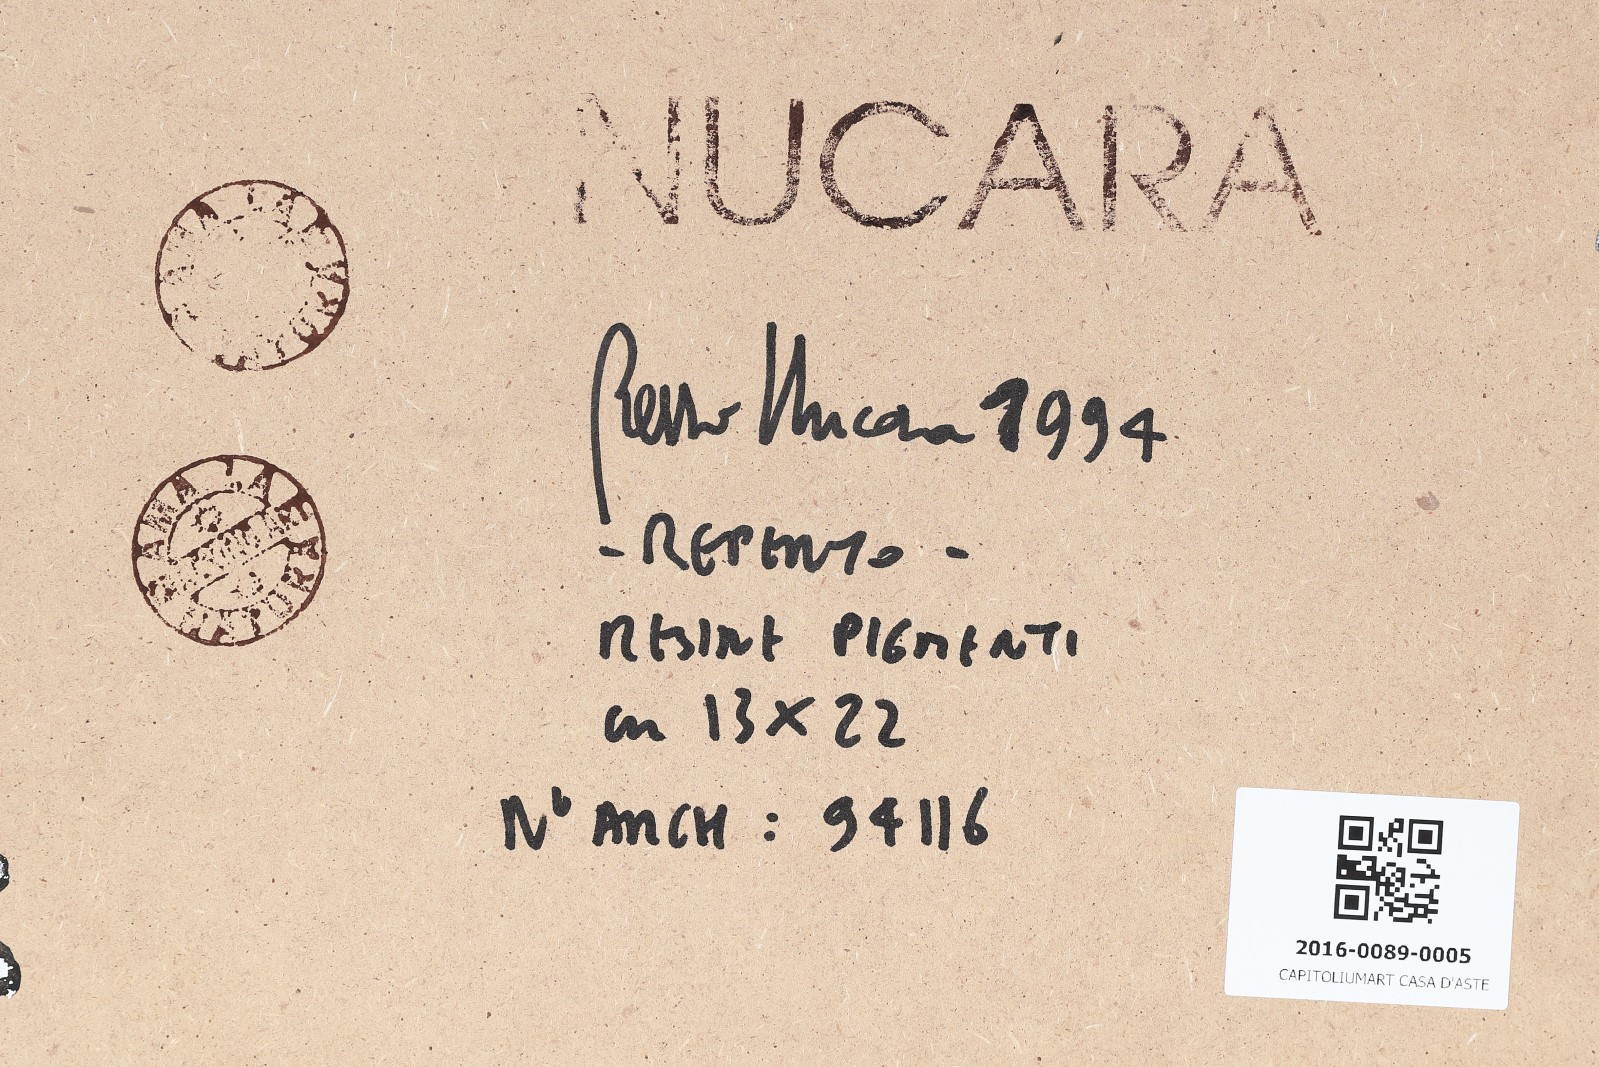 NUCARA
Nucara 1994
- REPERTO -
RESINE PIGMENTI
cm 13 X 22
N° ARCH : 94116
AMA LA
NATURA
2016-0089-0005
CAPITOLIUMART CASA D'ASTE